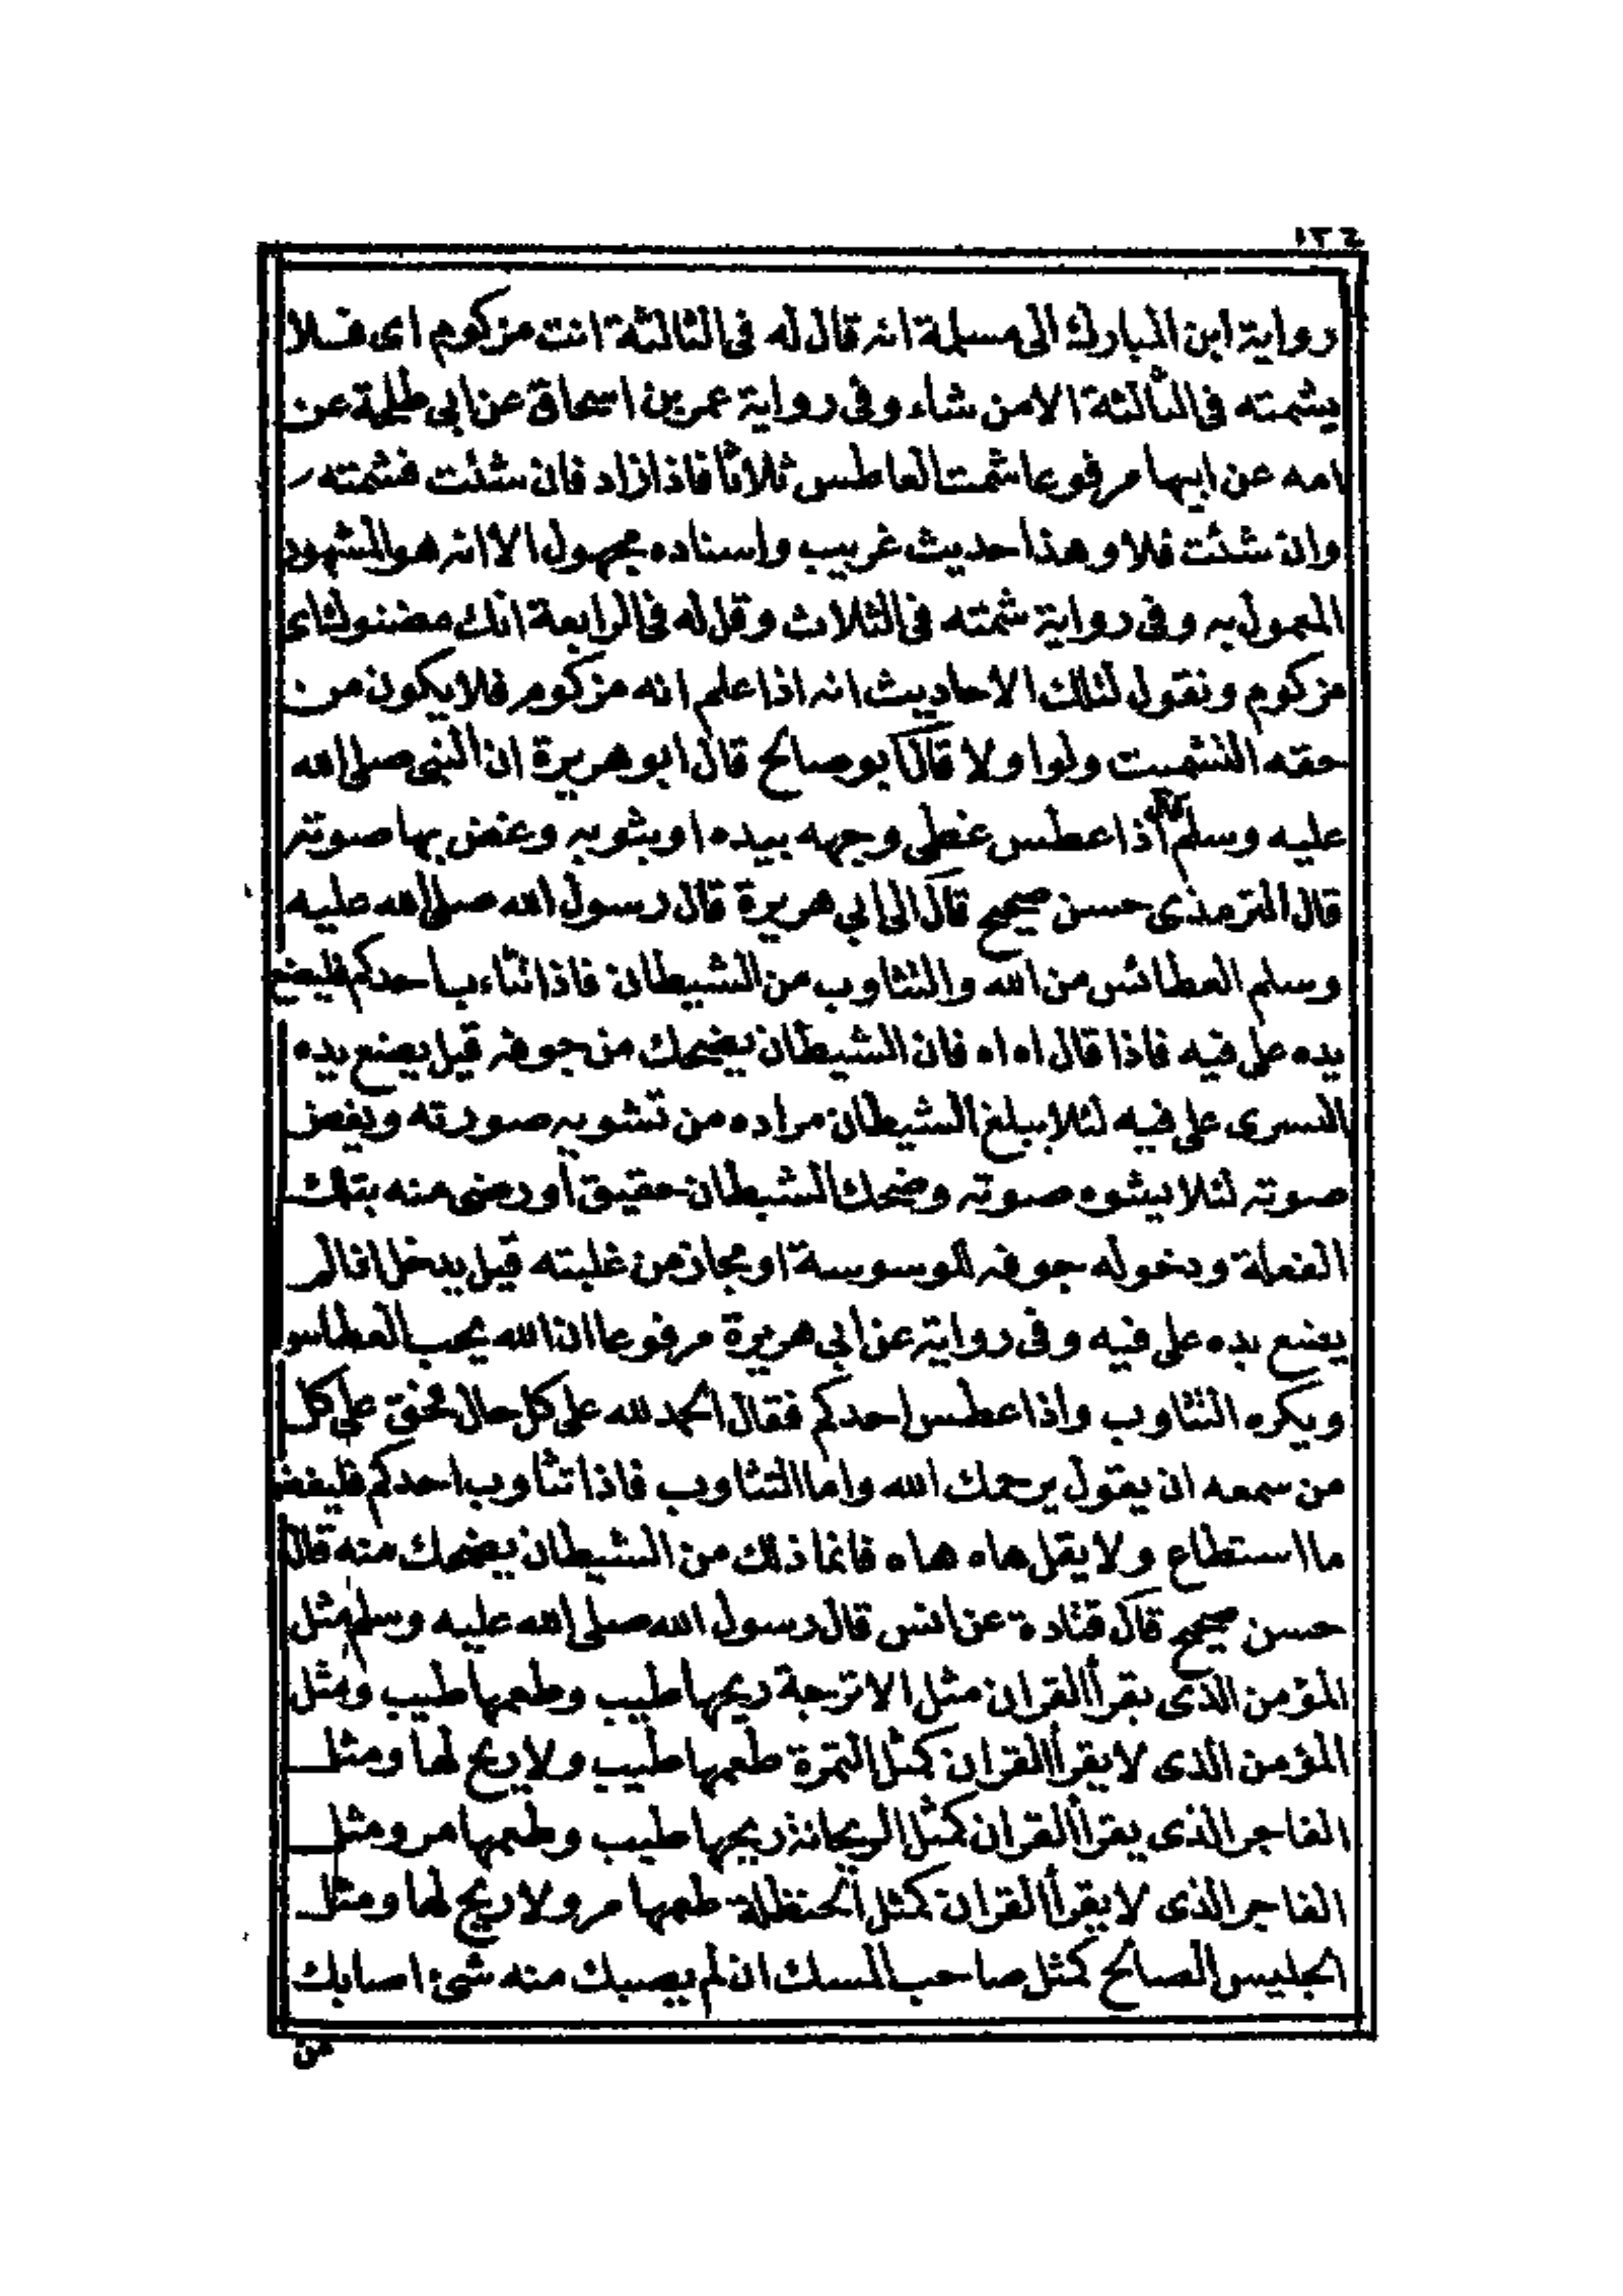 ١٣٤
رواية ابن المبارك الى مسلمة انه قال له فى الثالثة انت مزكوم اى فلا
يشمته فى الثالثة الا من شاء وفى رواية عمر بن اسحاق عن ابى طلحة عن
امه عن ابيها مرفوعا شمت العاطس ثلاثا فاذا زاد فان شئت فشمته
وان شئت فلا وهذا حديث غريب واسناده مجهول الا انه هو المشهود
المعمول به وفى رواية شمته فى الثلاث وقل له فى الرابعة انك مضنوك اى
مزكوم ونقول لتلك الاحاديث انه اذا علم انه مزكوم فلا يكون من
حقه التشميت ولوا ولا قال ابو صالح قال ابو هريرة ان النبى صلى الله
عليه وسلم اذا عطس غطى وجهه بيده او بثوبه وغض بها صوته
قال الترمذى حسن صحيح قال الى ابي هريرة قال رسول الله صلى الله عليه
وسلم العطائس من الله والتثاوب من الشيطان فاذا تثاءب احدكم فليضع
يده على فيه فاذا قال اه اه فان الشيطان يضحك من جوفه قيل يضع يده
اليسرى على فيه لئلا يبلغ الشيطان مراده من تشويه صورته ويغض
صوته لئلا يشوه صوته وضحك الشيطان حقيق او رضى منه بتلك
الفعلة ودخوله جوفه للوسوسة او مجاز من غلبته قيل يدخل اذا لم
يضع يده على فيه وفى رواية عن ابي هريرة مرفوعا ان الله يحب العطاس
ويكره التثاوب واذا عطس احدكم فقال الحمد لله على كل حال فحق على كل
من سمعه ان يقول يرحمك الله واما التثاوب فاذا تثاوب احدكم فليغض
ما استطاع ولا يقل هاه هاه فانما ذلك من الشيطان يضحك منه قال
حسن صحيح قال قتادة عن انس قال رسول الله صلى الله عليه وسلم مثل
المؤمن الذى يقرأ القران مثل الاترجة ريحها طيب وطعمها طيب ومثل
المؤمن الذى لا يقرأ القران كمثل التمرة طعمها طيب ولا ريح لها ومثل
الفاجر الذى يقرأ القران كمثل الريحانة ريحها طيب وطعمها مر ومثل
الفاجر الذى لا يقرأ القران كمثل الحنظلة طعمها مر ولا ريح لها ومثل
الجليس الصالح كمثل صاحب المسك ان لم يصبك منه شئ اصابك
من